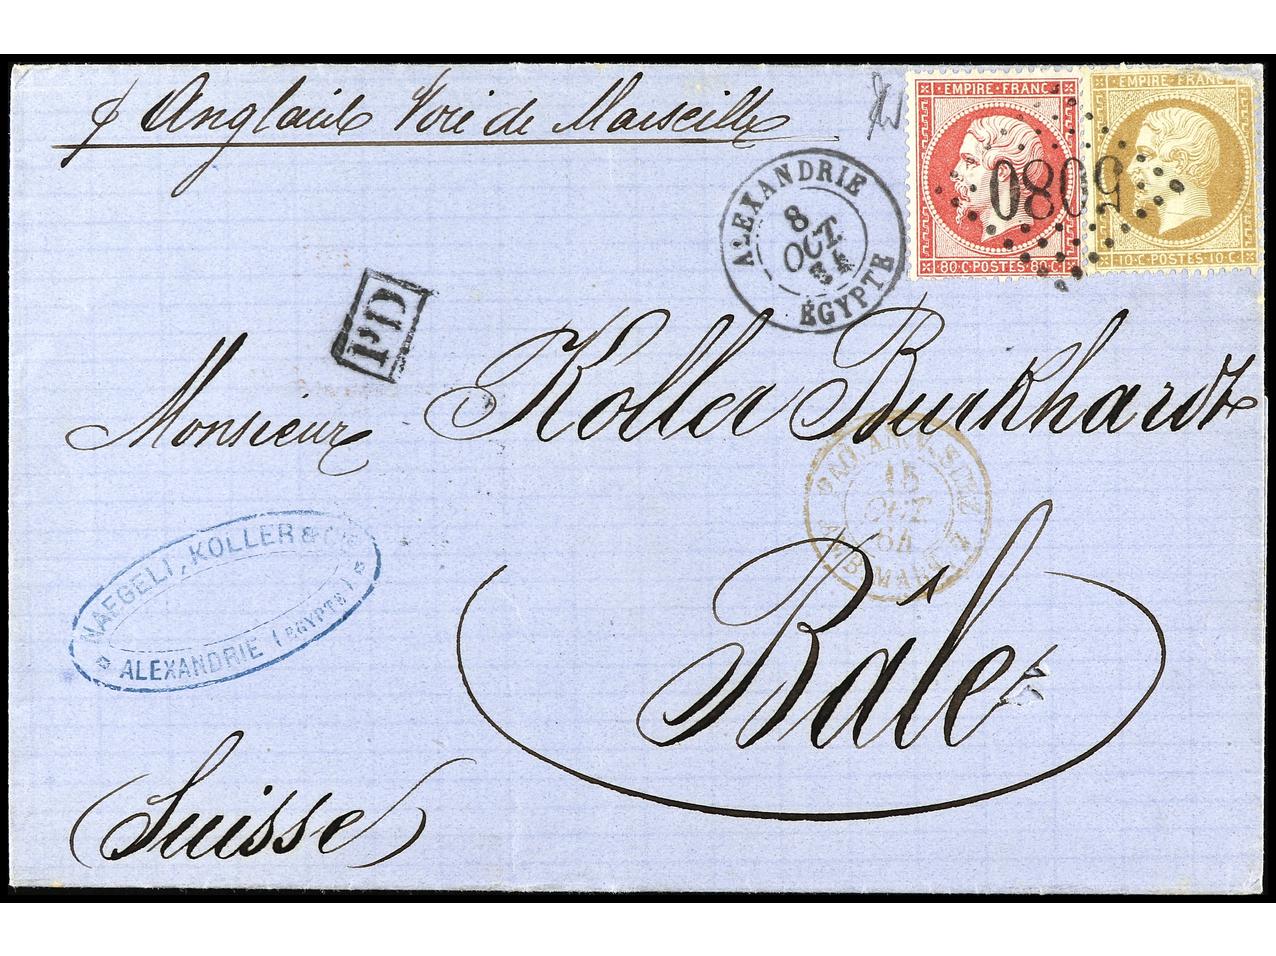 p Anglaise Voie de Marseille
EMPIRE · FRANC
80·C·POSTES·80·C·
EMPIRE · FRANC
10·C·POSTES·10·C·
5080
ALEXANDRIE
8
OCT.
64
ÉGYPTE
PD
Monsieur Koller Burkhardt
15
OCT
64
NAEGELI, KOLLER & Cie
ALEXANDRIE (EGYPTE)
Bâle
(Suisse)